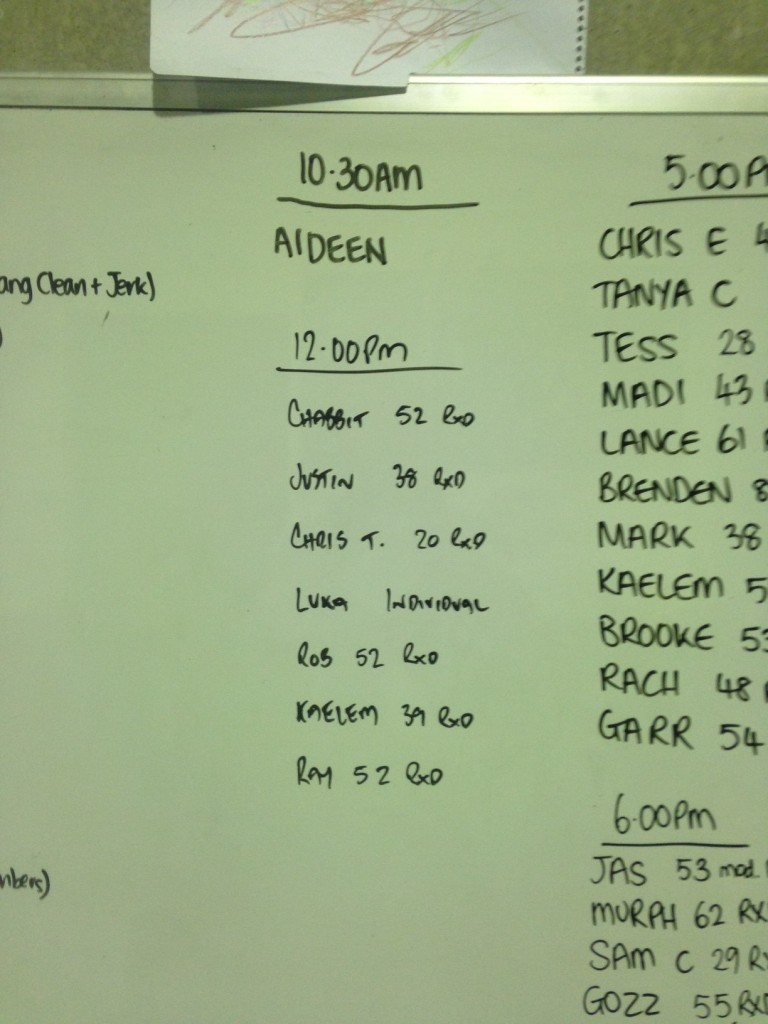 ang Clean + Jerk)
)
nbers)
10.30AM
AIDEEN
12.00PM
CHABBIT 52 RXD
JUSTIN 38 RXD
CHRIS T. 20 RXD
LUKA INDIVIDUAL
ROB 52 RXD
KAELEM 39 RXD
RAY 52 RXD
5.00P
CHRIS E 4
TANYA C
TESS 28
MADI 43
LANCE 61
BRENDEN 8
MARK 38
KAELEM 5
BROOKE 53
RACH 48
GARR 54
6.00PM
JAS 53 mod.
MURPH 62 RX
SAM C 29 R
GOZZ 55 RXD